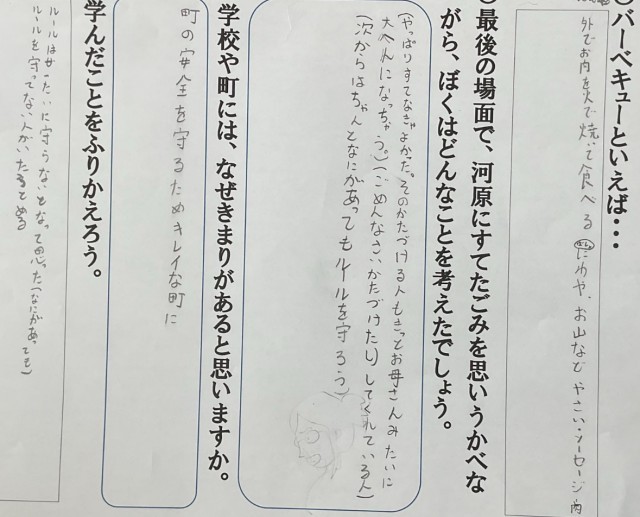 バーベキューといえば・・・
外でお肉を火で焼いて食べる にわや、お山など やさい・ソーセージ・肉
最後の場面で、河原にすてたごみを思いうかべな
がら、ぼくはどんなことを考えたでしょう。
(やっぱりすてなきゃよかった。そのかたづける人もきっとお母さんみたいに
大へんになっちゃう。)(ごめんなさいかたづけたりしてくれている人)
(次からはちゃんとなにがあってもルールを守ろう)
学校や町には、なぜきまりがあると思いますか。
町の安全を守るためキレイな町に
学んだことをふりかえろう。
ルールはぜったいに守らないとなって思った(なにがあっても)
ルールを守ってない人がいたらとめる